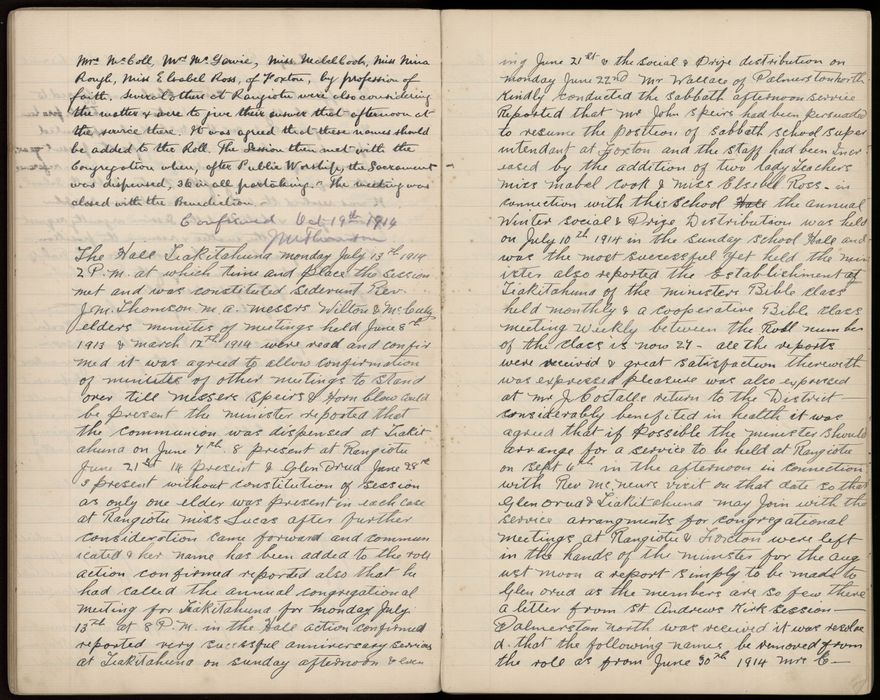 Mrs McColl, Mrs McGarvie, Miss Nina
Rough, Miss Elsabel Ross, of Foxton, by profession of
faith. Several others at Rangiotu were also considering
the matter & were to give their answer that afternoon at
the service there. It was agreed that these names should
be added to the Roll. The Session then met with the
Congregation when, after Public Worship, the Sacrament
was dispensed, 36 in all partaking. The meeting was
closed with the Benediction.
Confirmed Oct 19th 1914
JMThomson
The Hall Tiakitahuna monday July 13th 1914
2 P.M. at which time and place the session
met and was constituted Sederunt Rev.
J.M. Thomson M.A. messrs Wilton & McCully
elders minutes of meetings held June 8th
1913 & march 12th 1914 were read and confir
med it was agreed to allow confirmation
of minutes of other meetings to stand
over till messers Speirs & Hornblow could
be present the minister reported that
the communion was dispensed at Tiakit
ahuna on June 7th 8 present at Rangiotu
June 21st 14 present & Glen Orud June 28th
3 present without constitution of session
as only one elder was present in each case
at Rangiotu miss Lucas after further
consideration came forward and commun
icated & her name has been added to the roll
action confirmed reported also that he
had called the annual congregational
meeting for Tiakitahuna for monday July
13th at 8 P.M. in the Hall action confirmed
reported very sucessful anniversary services
at Tiakitahuna on sunday afternoon & even
ing June 21st & the social & Prize distribution on
monday June 22nd Mr Wallace of Palmerston north
kindly conducted the sabbath afternoon service
Reported that Mr John Speirs had been persuaded
to resume the position of sabbath school super
intendant at Foxton and the staff had been incr
eased by the addition of two lady Teachers
miss mabel cook & miss Elsebel Ross - in
connection with this school Hall the annual
winter social & Prize Distribution was held
on July 10th 1914 in the sunday school Hall and
was the most successful yet held the min
ister also reported the Establishment at
Tiakitahuna of the ministers Bible class
held monthly & a cooperative Bible class
meeting weekly between the Roll number
of the class is now 27 - all the reports
were received & great satisfaction therewith
was expressed pleasure was also expressed
at Mr J. Costalls return to the District
considerably benefited in health it was
agreed that if possible the minister should
arrange for a service to be held at Rangiotu
on Sept 6th in the afternoon in connection
with Rev visit on that date so that
Glen orud & Tiakitahuna may Join with the
service arrangments for congregational
meetings at Rangiotu & Foxton were left
in the hands of the minister for the aug
ust moon a report simply to be made to
Glen orud as the members are so few there
a letter from St Andrews Kirk session
Palmerston north was received it was resolve
d. that the following names be removed from
the roll as from June 30th 1914 Mrs C-